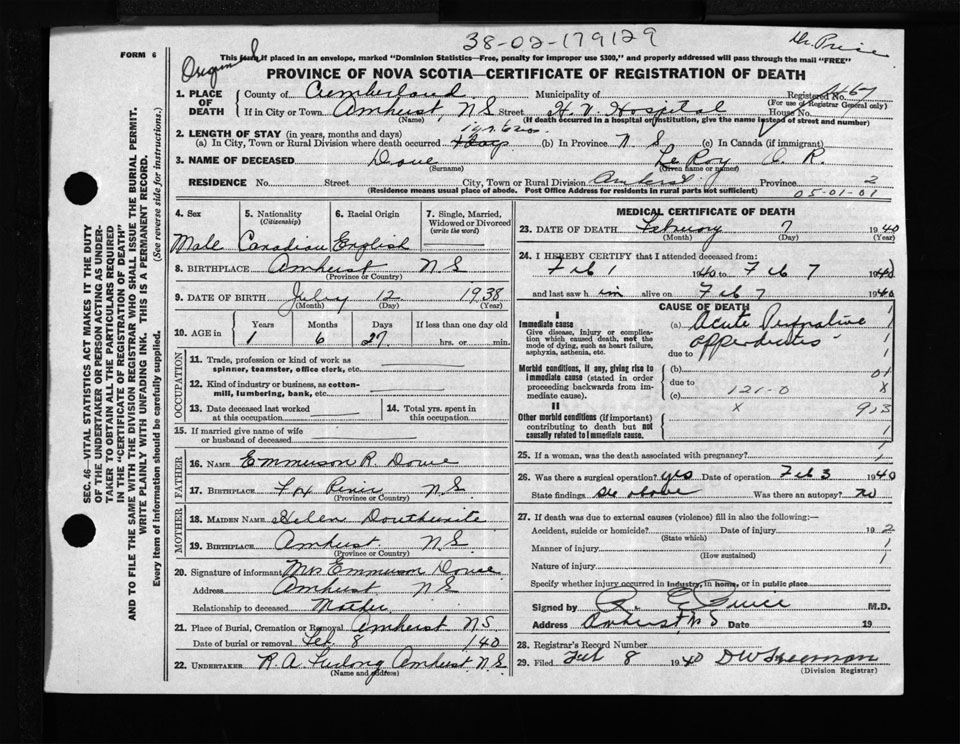 38-02-179129
Dr Price
FORM 6
Original
This form if placed in an envelope, marked "Dominion Statistics—Free, penalty for improper use $300," and properly addressed will pass through the mail "FREE"
PROVINCE OF NOVA SCOTIA—CERTIFICATE OF REGISTRATION OF DEATH
1. PLACE OF DEATH
County of Cumberland Municipality of Registered No. 467
(For use of Registrar General only)
If in City or Town Amherst, N S Street H. V. Hospital House No.
(Name) (If death occurred in a hospital or institution, give the name instead of street and number)
2. LENGTH OF STAY (in years, months and days)
(a) In City, Town or Rural Division where death occurred 1 yr. 6 mos. (b) In Province N S (c) In Canada (if immigrant)
3. NAME OF DECEASED Dowe LeRoy O. R.
(Surname) (Given name or names)
RESIDENCE No. Street City, Town or Rural Division Amherst Province 2
(Residence means usual place of abode. Post Office Address for residents in rural parts not sufficient) 05-01-01
4. Sex Male
5. Nationality (Citizenship) Canadian
6. Racial Origin English
7. Single, Married, Widowed or Divorced (write the word)
8. BIRTHPLACE Amherst N S
(Province or Country)
9. DATE OF BIRTH July 12 1938
(Month) (Day) (Year)
10. AGE in Years 1 Months 6 Days 27 If less than one day old hrs. or min.
OCCUPATION
11. Trade, profession or kind of work as spinner, teamster, office clerk, etc.
12. Kind of industry or business, as cotton-mill, lumbering, bank, etc.
13. Date deceased last worked at this occupation
14. Total yrs. spent in this occupation
15. If married give name of wife or husband of deceased
FATHER
16. NAME Emmerson R. Dowe
17. BIRTHPLACE Fox River N.S.
MOTHER
18. MAIDEN NAME Helen Douthwaite
19. BIRTHPLACE Amherst N.S.
(Province or Country)
20. Signature of informant Mrs Emmerson Dowe
Address Amherst N S
Relationship to deceased Mother
21. Place of Burial, Cremation or Removal Amherst N S
Date of burial or removal Feb. 8 /40
22. UNDERTAKER R. A. Furlong Amherst N S
(Name and address)
MEDICAL CERTIFICATE OF DEATH
23. DATE OF DEATH February 7 1940
(Month) (Day) (Year)
24. I HEREBY CERTIFY that I attended deceased from:
Feb 1 1940 to Feb 7 1940
and last saw h im alive on Feb 7 1940
CAUSE OF DEATH
I
Immediate cause
Give disease, injury or complication which caused death, not the mode of dying, such as heart failure, asphyxia, asthenia, etc.
(a) Acute Perforative appendicitis
due to
Morbid conditions, if any, giving rise to immediate cause (stated in order proceeding backwards from immediate cause).
(b)
due to
(c) 121-0
x 913
II
Other morbid conditions (if important) contributing to death but not causally related to immediate cause.
25. If a woman, was the death associated with pregnancy?
26. Was there a surgical operation? yes Date of operation Feb 3 1940
State findings see above Was there an autopsy? no
27. If death was due to external causes (violence) fill in also the following:—
Accident, suicide or homicide? Date of injury 19
(State which)
Manner of injury
(How sustained)
Nature of injury
Specify whether injury occurred in industry, in home, or in public place
Signed by Price M.D.
Address Amherst, N S Date 19
28. Registrar's Record Number
29. Filed Feb 8 1940 D W Freeman
(Division Registrar)
SEC. 46—VITAL STATISTICS ACT MAKES IT THE DUTY
OF THE UNDERTAKER OR PERSON ACTING AS UNDER-
TAKER TO OBTAIN ALL THE PARTICULARS REQUIRED
IN THE "CERTIFICATE OF REGISTRATION OF DEATH"
AND TO FILE THE SAME WITH THE DIVISION REGISTRAR WHO SHALL ISSUE THE BURIAL PERMIT.
WRITE PLAINLY WITH UNFADING INK. THIS IS A PERMANENT RECORD.
Every item of Information should be carefully supplied. (See reverse side for instructions.)